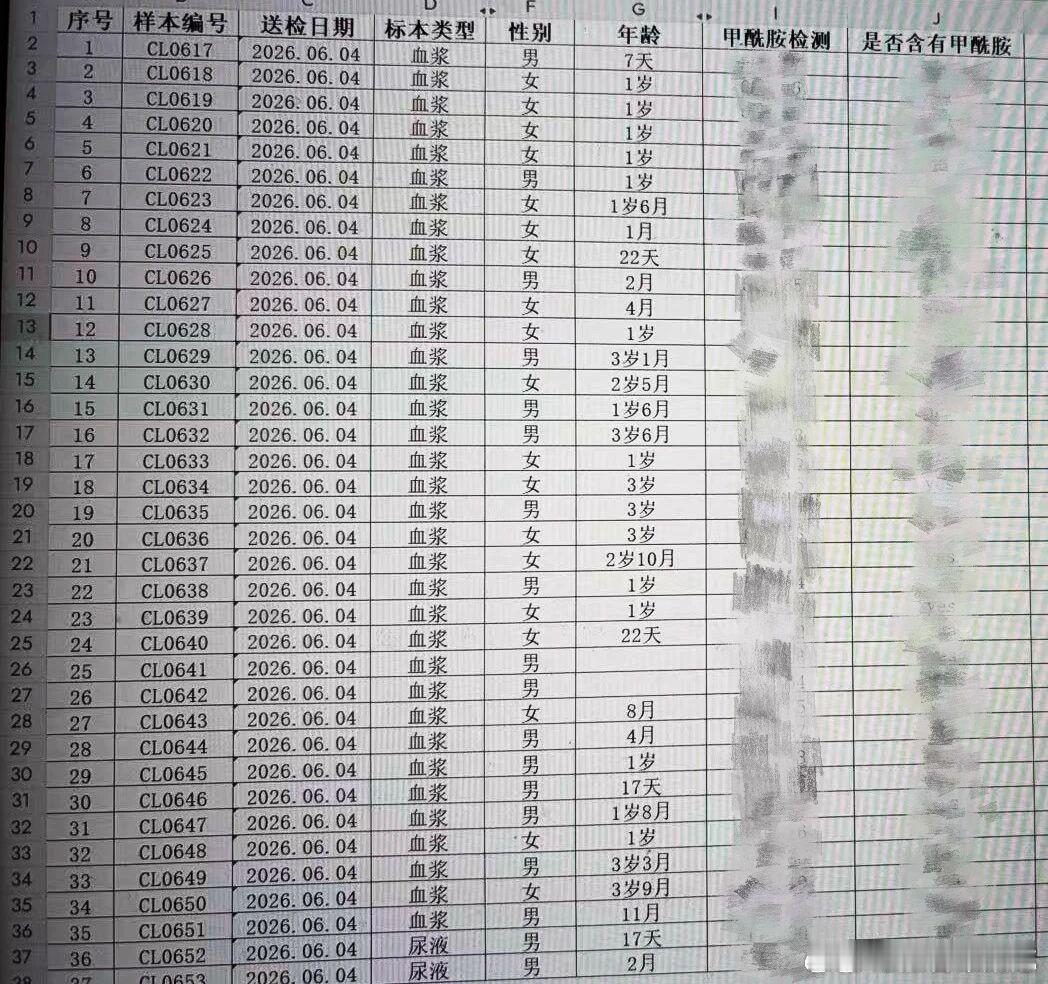 C D F G I J
1 序号 样本编号 送检日期 标本类型 性别 年龄 甲酰胺检测 是否含有甲酰胺
2 1 CL0617 2026.06.04 血浆 男 7天
3 2 CL0618 2026.06.04 血浆 女 1岁
4 3 CL0619 2026.06.04 血浆 女 1岁
5 4 CL0620 2026.06.04 血浆 女 1岁
6 5 CL0621 2026.06.04 血浆 女 1岁
7 6 CL0622 2026.06.04 血浆 男 1岁
8 7 CL0623 2026.06.04 血浆 女 1岁6月
9 8 CL0624 2026.06.04 血浆 女 1月
10 9 CL0625 2026.06.04 血浆 女 22天
11 10 CL0626 2026.06.04 血浆 男 2月
12 11 CL0627 2026.06.04 血浆 女 4月
13 12 CL0628 2026.06.04 血浆 女 1岁
14 13 CL0629 2026.06.04 血浆 男 3岁1月
15 14 CL0630 2026.06.04 血浆 女 2岁5月
16 15 CL0631 2026.06.04 血浆 男 1岁6月
17 16 CL0632 2026.06.04 血浆 男 3岁6月
18 17 CL0633 2026.06.04 血浆 女 1岁
19 18 CL0634 2026.06.04 血浆 女 3岁
20 19 CL0635 2026.06.04 血浆 男 3岁
21 20 CL0636 2026.06.04 血浆 女 3岁
22 21 CL0637 2026.06.04 血浆 女 2岁10月
23 22 CL0638 2026.06.04 血浆 男 1岁
24 23 CL0639 2026.06.04 血浆 女 1岁 yes
25 24 CL0640 2026.06.04 血浆 女 22天
26 25 CL0641 2026.06.04 血浆 男
27 26 CL0642 2026.06.04 血浆 男
28 27 CL0643 2026.06.04 血浆 女 8月
29 28 CL0644 2026.06.04 血浆 男 4月
30 29 CL0645 2026.06.04 血浆 男 1岁
31 30 CL0646 2026.06.04 血浆 男 17天
32 31 CL0647 2026.06.04 血浆 男 1岁8月
33 32 CL0648 2026.06.04 血浆 女 1岁
34 33 CL0649 2026.06.04 血浆 男 3岁3月
35 34 CL0650 2026.06.04 血浆 女 3岁9月
36 35 CL0651 2026.06.04 血浆 男 11月
37 36 CL0652 2026.06.04 尿液 男 17天
38 37 CL0653 2026.06.04 尿液 男 2月